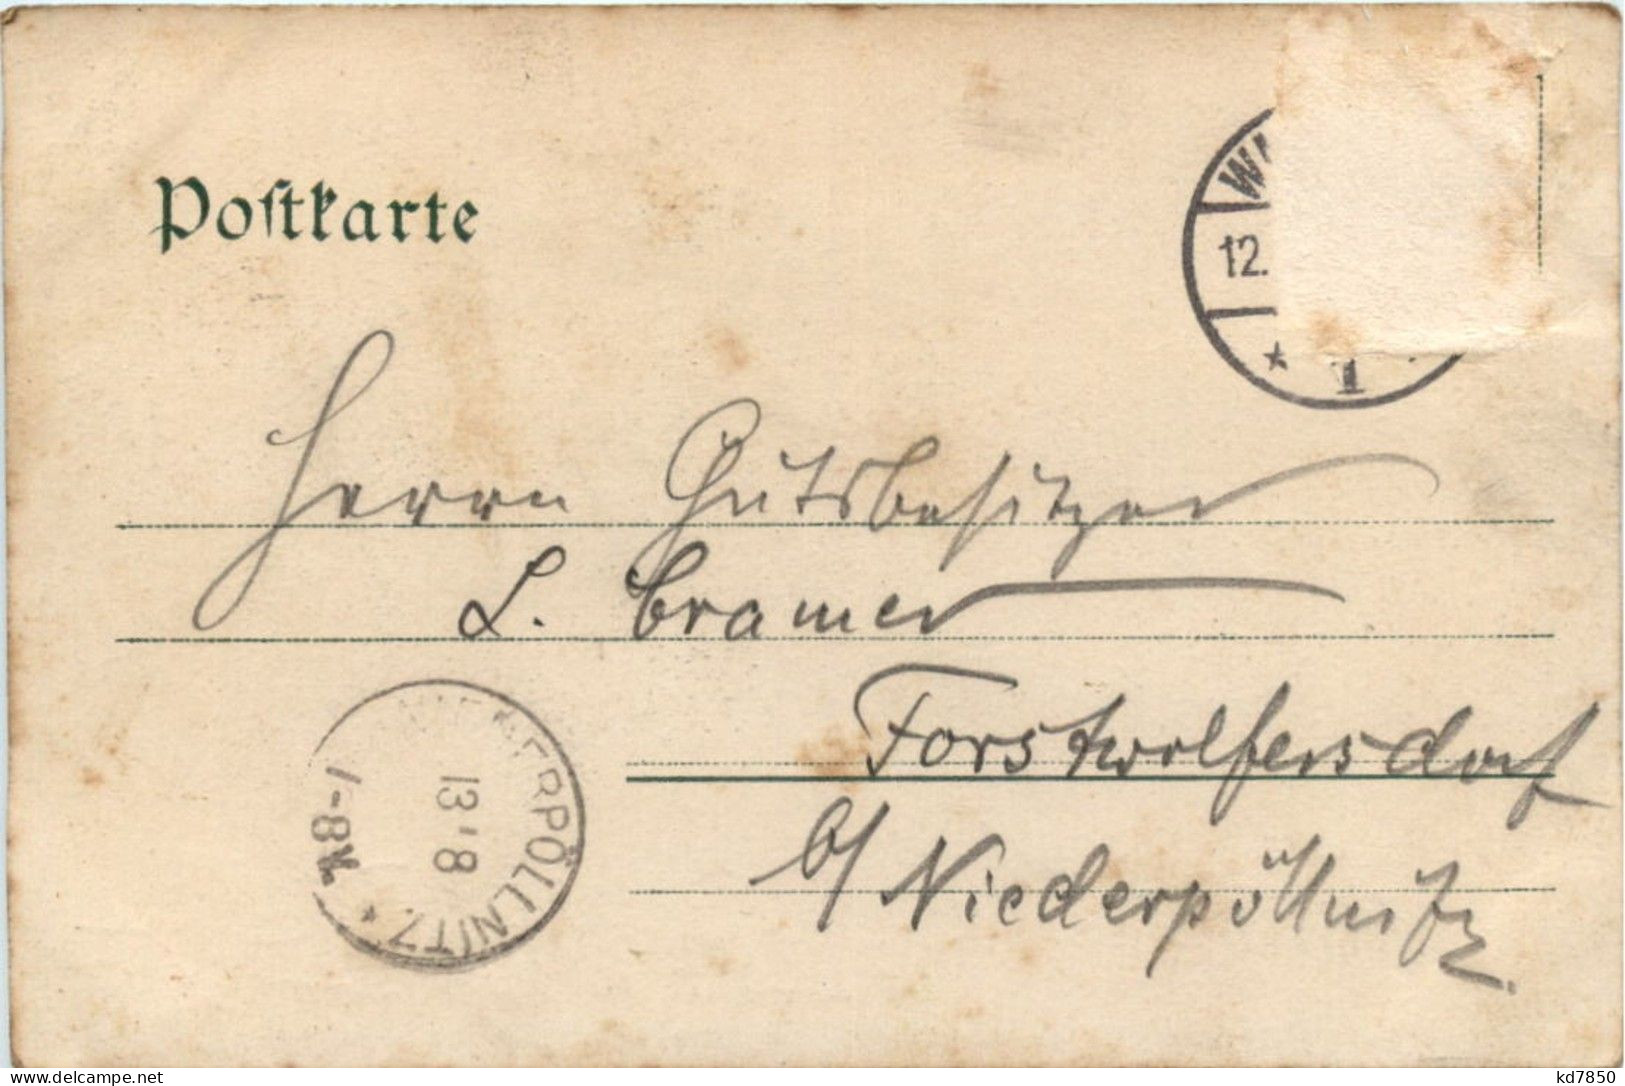 Postkarte
12.
1
Herrn Gutsbesitzer
L. Cramer
Forstwolfersdorf
b/ Niederpöllnitz.
NIEDERPÖLLNITZ
13 8
7-8 V.
www.delcampe.net
kd7850